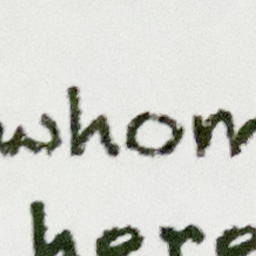 whom
here